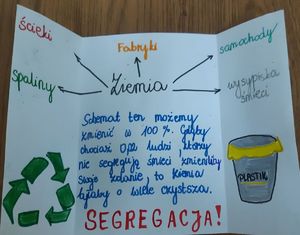 ścieki
Fabryki
samochody
spaliny
Ziemia
wysypiska
śmieci
Schemat ten możemy
zmienić w 100%. Gdyby
chociaż 0,1% ludzi, którzy
nie segregują śmieci zmieniliby
swoje zdanie, to ziemia
byłaby o wiele czystsza.
PLASTIK
SEGREGACJA!